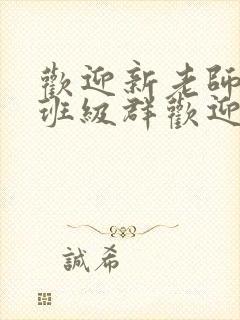 歡迎新老師
班級群歡迎
誠希